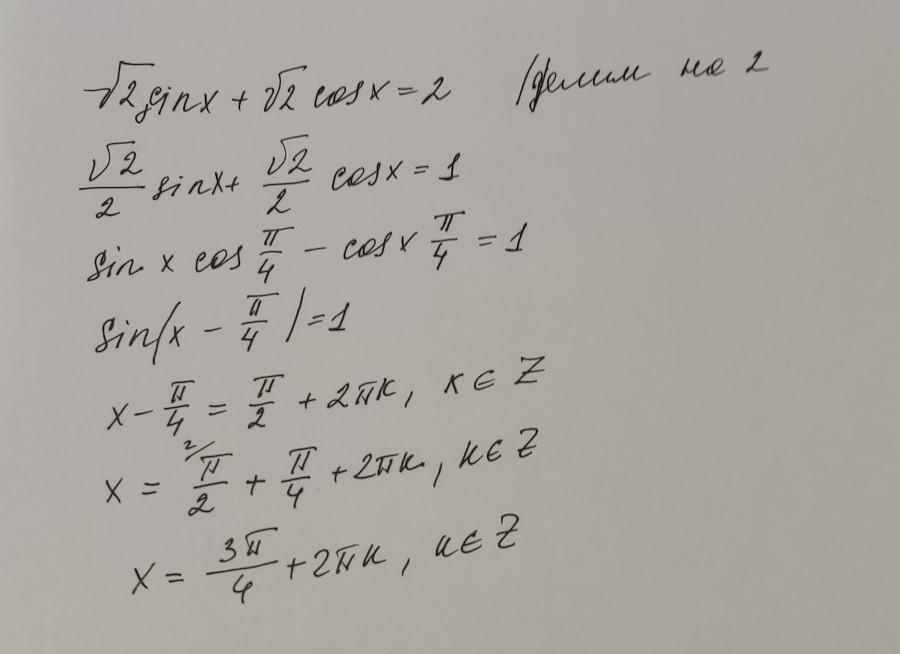 √2 sinx + √2 cosx = 2 /делим на 2
√2/2 sinx + √2/2 cosx = 1
sin x cos π/4 − cosx π/4 = 1
sin(x − π/4) = 1
x − π/4 = π/2 + 2πk, k ∈ Z
x = ²/ π/2 + π/4 + 2πk, k ∈ Z
x = 3π/4 + 2πk, k ∈ Z